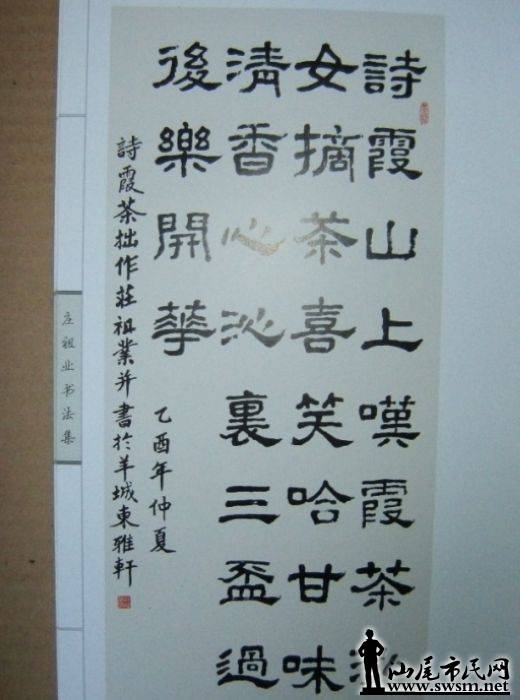 詩霞山上嘆霞茶
女摘茶喜笑哈甘味
清香心沁裏三盃過
後樂開華
乙酉年仲夏
詩霞茶拙作莊祖業并書於羊城東雅軒
庄祖业书法集
汕尾市民网
www.swsm.net